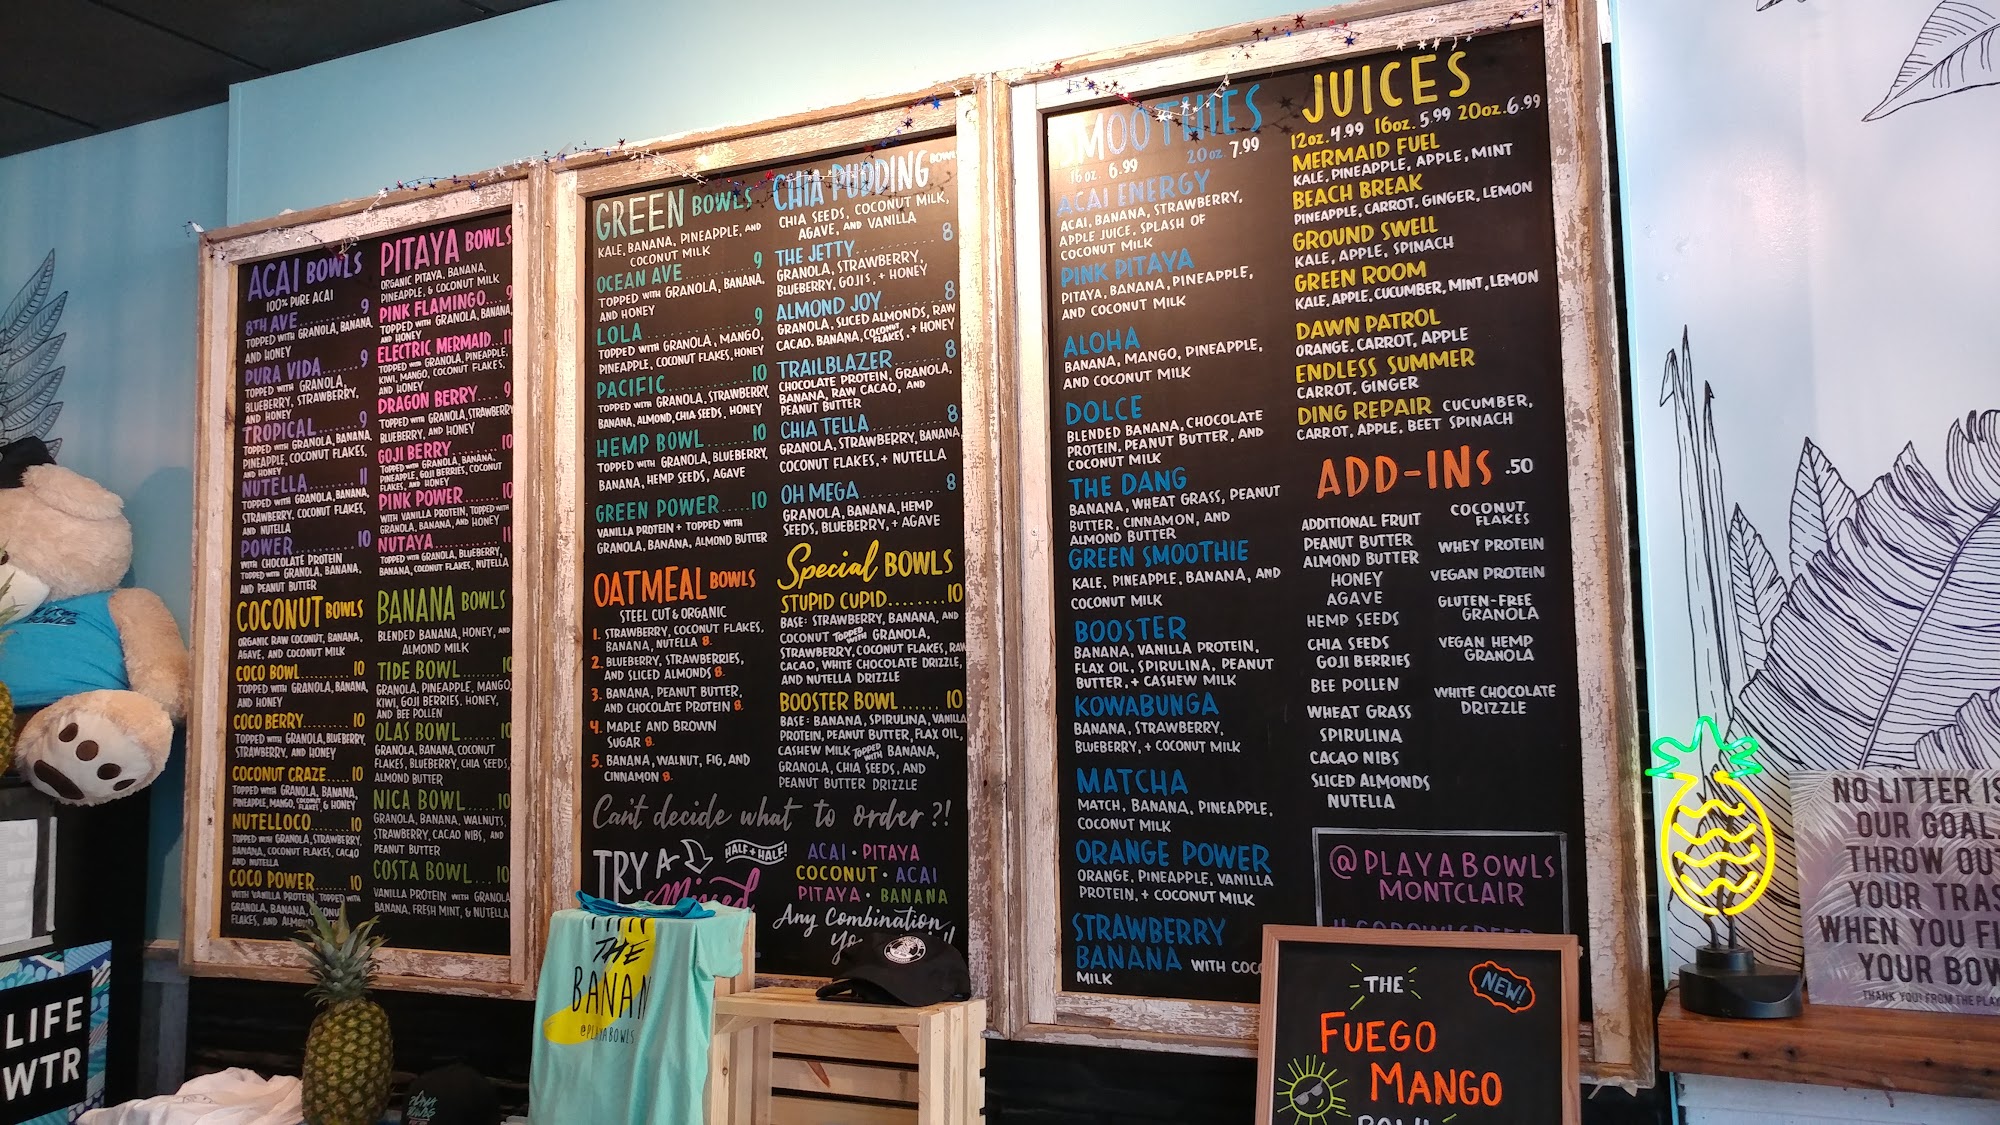 ACAI BOWLS
100% PURE ACAI
8TH AVE........9
TOPPED WITH GRANOLA, BANANA,
AND HONEY
PURA VIDA......9
TOPPED WITH GRANOLA,
BLUEBERRY, STRAWBERRY,
AND HONEY
TROPICAL.......9
TOPPED WITH GRANOLA, BANANA
PINEAPPLE, COCONUT FLAKES,
AND HONEY
NUTELLA........11
TOPPED WITH GRANOLA, BANANA,
STRAWBERRY, COCONUT FLAKES,
AND NUTELLA
POWER..........10
WITH CHOCOLATE PROTEIN
TOPPED WITH GRANOLA, BANANA,
AND PEANUT BUTTER
COCONUT BOWLS
ORGANIC RAW COCONUT, BANANA,
AGAVE, AND COCONUT MILK
COCO BOWL......10
TOPPED WITH GRANOLA, BANANA,
AND HONEY
COCO BERRY.....10
TOPPED WITH GRANOLA, BLUEBERRY,
STRAWBERRY, AND HONEY
COCONUT CRAZE.....10
TOPPED WITH GRANOLA, BANANA,
PINEAPPLE, MANGO, COCONUT FLAKES, & HONEY
NUTELLOCO......10
TOPPED WITH GRANOLA, STRAWBERRY,
BANANA, COCONUT FLAKES, CACAO
AND NUTELLA
COCO POWER.....10
WITH VANILLA PROTEIN, TOPPED WITH
GRANOLA, BANANA,
FLAKES, AND
PITAYA BOWLS
ORGANIC PITAYA, BANANA,
PINEAPPLE, & COCONUT MILK
PINK FLAMINGO....9
TOPPED WITH GRANOLA, BANANA,
AND HONEY
ELECTRIC MERMAID...11
TOPPED WITH GRANOLA, PINEAPPLE,
KIWI, MANGO, COCONUT FLAKES,
AND HONEY
DRAGON BERRY....9
TOPPED WITH GRANOLA, STRAWBERRY
BLUEBERRY, AND HONEY
GOJI BERRY......10
TOPPED WITH GRANOLA, BANANA,
PINEAPPLE, GOJI BERRIES, COCONUT
FLAKES, AND HONEY
PINK POWER......10
WITH VANILLA PROTEIN, TOPPED WITH
GRANOLA, BANANA, AND HONEY
NUTAYA..........11
TOPPED WITH GRANOLA, BLUEBERRY,
BANANA, COCONUT FLAKES, NUTELLA
BANANA BOWLS
BLENDED BANANA, HONEY, AND
ALMOND MILK
TIDE BOWL.......10
GRANOLA, PINEAPPLE, MANGO,
KIWI, GOJI BERRIES, HONEY,
AND BEE POLLEN
OLAS BOWL.......10
GRANOLA, BANANA, COCONUT
FLAKES, BLUEBERRY, CHIA SEEDS,
ALMOND BUTTER
NICA BOWL.....10
GRANOLA, BANANA, WALNUTS,
STRAWBERRY, CACAO NIBS, AND
PEANUT BUTTER
COSTA BOWL...10
VANILLA PROTEIN WITH GRANOLA
BANANA, FRESH MINT, & NUTELLA
GREEN BOWLS
KALE, BANANA, PINEAPPLE, AND
COCONUT MILK
OCEAN AVE.........9
TOPPED WITH GRANOLA, BANANA,
AND HONEY
LOLA..............9
TOPPED WITH GRANOLA, MANGO,
PINEAPPLE, COCONUT FLAKES, HONEY
PACIFIC..........10
TOPPED WITH GRANOLA, STRAWBERRY
BANANA, ALMOND, CHIA SEEDS, HONEY
HEMP BOWL......10
TOPPED WITH GRANOLA, BLUEBERRY,
BANANA, HEMP SEEDS, AGAVE
GREEN POWER......10
VANILLA PROTEIN + TOPPED WITH
GRANOLA, BANANA, ALMOND BUTTER
OATMEAL BOWLS
STEEL CUT & ORGANIC
1. STRAWBERRY, COCONUT FLAKES,
BANANA, NUTELLA 8.
2. BLUEBERRY, STRAWBERRIES,
AND SLICED ALMONDS 8.
3. BANANA, PEANUT BUTTER,
AND CHOCOLATE PROTEIN 8.
4. MAPLE AND BROWN
SUGAR 8.
5. BANANA, WALNUT, FIG, AND
CINNAMON 8.
CHIA PUDDING BOWL
CHIA SEEDS, COCONUT MILK,
AGAVE, AND VANILLA
THE JETTY..........8
GRANOLA, STRAWBERRY,
BLUEBERRY, GOJIS, + HONEY
ALMOND JOY........8
GRANOLA, SLICED ALMONDS, RAW
CACAO, BANANA, COCONUT FLAKES, + HONEY
TRAILBLAZER......8
CHOCOLATE PROTEIN, GRANOLA,
BANANA, RAW CACAO, AND
PEANUT BUTTER
CHIA TELLA........8
GRANOLA, STRAWBERRY, BANANA,
COCONUT FLAKES, + NUTELLA
OH MEGA...........8
GRANOLA, BANANA, HEMP
SEEDS, BLUEBERRY, + AGAVE
Special BOWLS
STUPID CUPID........10
BASE: STRAWBERRY, BANANA, AND
COCONUT TOPPED WITH GRANOLA,
STRAWBERRY, COCONUT FLAKES, RAW
CACAO, WHITE CHOCOLATE DRIZZLE,
AND NUTELLA DRIZZLE
BOOSTER BOWL......10
BASE: BANANA, SPIRULINA, VANILLA
PROTEIN, PEANUT BUTTER, FLAX OIL,
CASHEW MILK TOPPED WITH BANANA,
GRANOLA, CHIA SEEDS, AND
PEANUT BUTTER DRIZZLE
Can't decide what to order?!
TRY A
Mixed
HALF + HALF!
ACAI • PITAYA
COCONUT • ACAI
PITAYA • BANANA
Any Combination
SMOOTHIES
16 oz 6.99 20 oz 7.99
ACAI ENERGY
ACAI, BANANA, STRAWBERRY,
APPLE JUICE, SPLASH OF
COCONUT MILK
PINK PITAYA
PITAYA, BANANA, PINEAPPLE,
AND COCONUT MILK
ALOHA
BANANA, MANGO, PINEAPPLE,
AND COCONUT MILK
DOLCE
BLENDED BANANA, CHOCOLATE
PROTEIN, PEANUT BUTTER, AND
COCONUT MILK
THE DANG
BANANA, WHEAT GRASS, PEANUT
BUTTER, CINNAMON, AND
ALMOND BUTTER
GREEN SMOOTHIE
KALE, PINEAPPLE, BANANA, AND
COCONUT MILK
BOOSTER
BANANA, VANILLA PROTEIN,
FLAX OIL, SPIRULINA, PEANUT
BUTTER, + CASHEW MILK
KOWABUNGA
BANANA, STRAWBERRY,
BLUEBERRY, + COCONUT MILK
MATCHA
MATCH, BANANA, PINEAPPLE,
COCONUT MILK
ORANGE POWER
ORANGE, PINEAPPLE, VANILLA
PROTEIN, + COCONUT MILK
STRAWBERRY
BANANA WITH COC
MILK
JUICES
12oz. 4.99 16oz. 5.99 20oz. 6.99
MERMAID FUEL
KALE, PINEAPPLE, APPLE, MINT
BEACH BREAK
PINEAPPLE, CARROT, GINGER, LEMON
GROUND SWELL
KALE, APPLE, SPINACH
GREEN ROOM
KALE, APPLE, CUCUMBER, MINT, LEMON
DAWN PATROL
ORANGE, CARROT, APPLE
ENDLESS SUMMER
CARROT, GINGER
DING REPAIR CUCUMBER,
CARROT, APPLE, BEET SPINACH
ADD-INS .50
ADDITIONAL FRUIT
PEANUT BUTTER
ALMOND BUTTER
HONEY
AGAVE
HEMP SEEDS
CHIA SEEDS
GOJI BERRIES
BEE POLLEN
WHEAT GRASS
SPIRULINA
CACAO NIBS
SLICED ALMONDS
NUTELLA
COCONUT
FLAKES
WHEY PROTEIN
VEGAN PROTEIN
GLUTEN-FREE
GRANOLA
VEGAN HEMP
GRANOLA
WHITE CHOCOLATE
DRIZZLE
@PLAYABOWLS
MONTCLAIR
THE
NEW!
FUEGO
MANGO
BOWL
NO LITTER IS
OUR GOAL.
THROW OUT
YOUR TRAS
WHEN YOU FI
YOUR BOW
THANK YOU! FROM THE PLAY
THE
BANAN
@PLAYABOWLS
LIFE
WTR